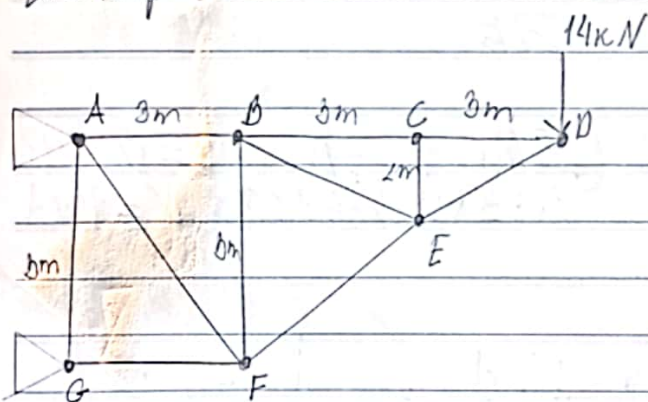 14KN
A 3m B 3m C 3m D
2m
E
G F